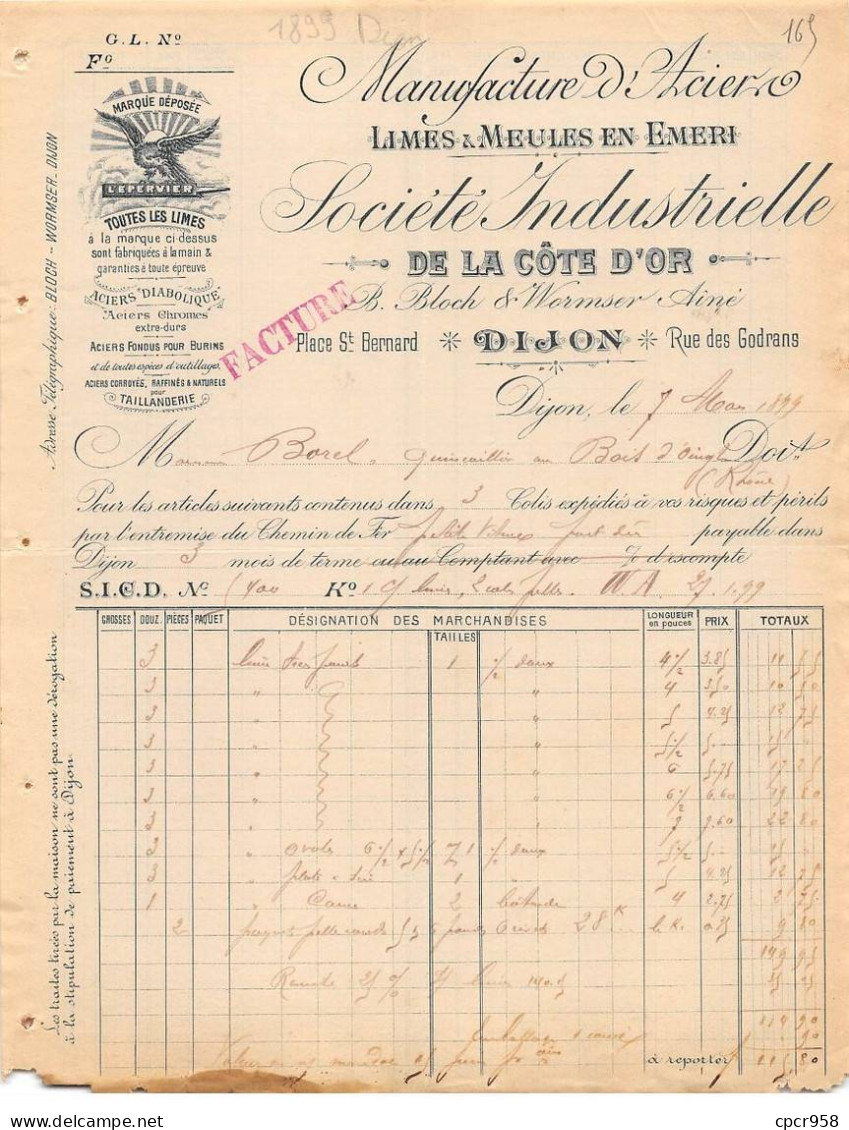 1899 Dijon
165
G. L. Nº
Fº
MARQUE DÉPOSÉE
L'EPERVIER
TOUTES LES LIMES
à la marque ci-dessus
sont fabriquées à la main &
garanties à toute épreuve
ACIERS "DIABOLIQUE"
Aciers Chromés
extra-durs
ACIERS FONDUS POUR BURINS
et de toutes espèces d'outillages,
ACIERS CORROYÉS, RAFFINÉS & NATURELS
pour
TAILLANDERIE
Adresse Télégraphique: BLOCH - WORMSER. DIJON
Manufacture d'Aciers
LIMES & MEULES EN EMERI
Société Industrielle
DE LA CÔTE D'OR
B. Bloch & Wormser Aîné
FACTURE
Place St Bernard * DIJON * Rue des Godrans
Dijon, le 7 Mars 1899
Monsieur Borel, quincaillier au Bois d'Oingt Doit
(Rhône)
Pour les articles suivants contenus dans 3 Colis expédiés à vos risques et périls
par l'entremise du Chemin de Fer petite vitesse port dû payable dans
Dijon 3 mois de terme ou au Comptant avec % d'escompte
S.I.C.D. Nº 1400 Kº 1 limes, 2 colis pelles. W.A. 27.1.99
GROSSES DOUZ. PIÈCES PAQUET DÉSIGNATION DES MARCHANDISES TAILLES LONGUEUR en pouces PRIX TOTAUX
3 1 ½ doux 4 ½ 3.85 11 55
3 " " 4 3.50 10 50
3 " " 5 4.25 12 75
3 " " 5 ½ 5 - 15 -
3 " " 6 5.75 17 25
3 " " 6 ½ 6.60 19 80
3 " " 7 7.60 22 80
3 " ovales 6 ½ & 5 ½ 1 ½ doux 5 ½ 5 - 15 -
3 " plate 1 " 4.25 12 75
1 " 2 bâtarde 4 2.75 2 75
2 paquets pelle ronde 28 K. 9 80
149 95
Remise 25 %
114 90
Emballage 90
à reporter 115 80
Les traites tirées par la maison ne sont pas une dérogation
à la stipulation de paiement à Dijon.
cpcr958